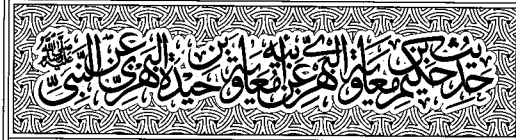 حديث حكيم بن معاوية البهزي عن أبيه معاوية بن حيدة البهزي عن النبي ﷺ